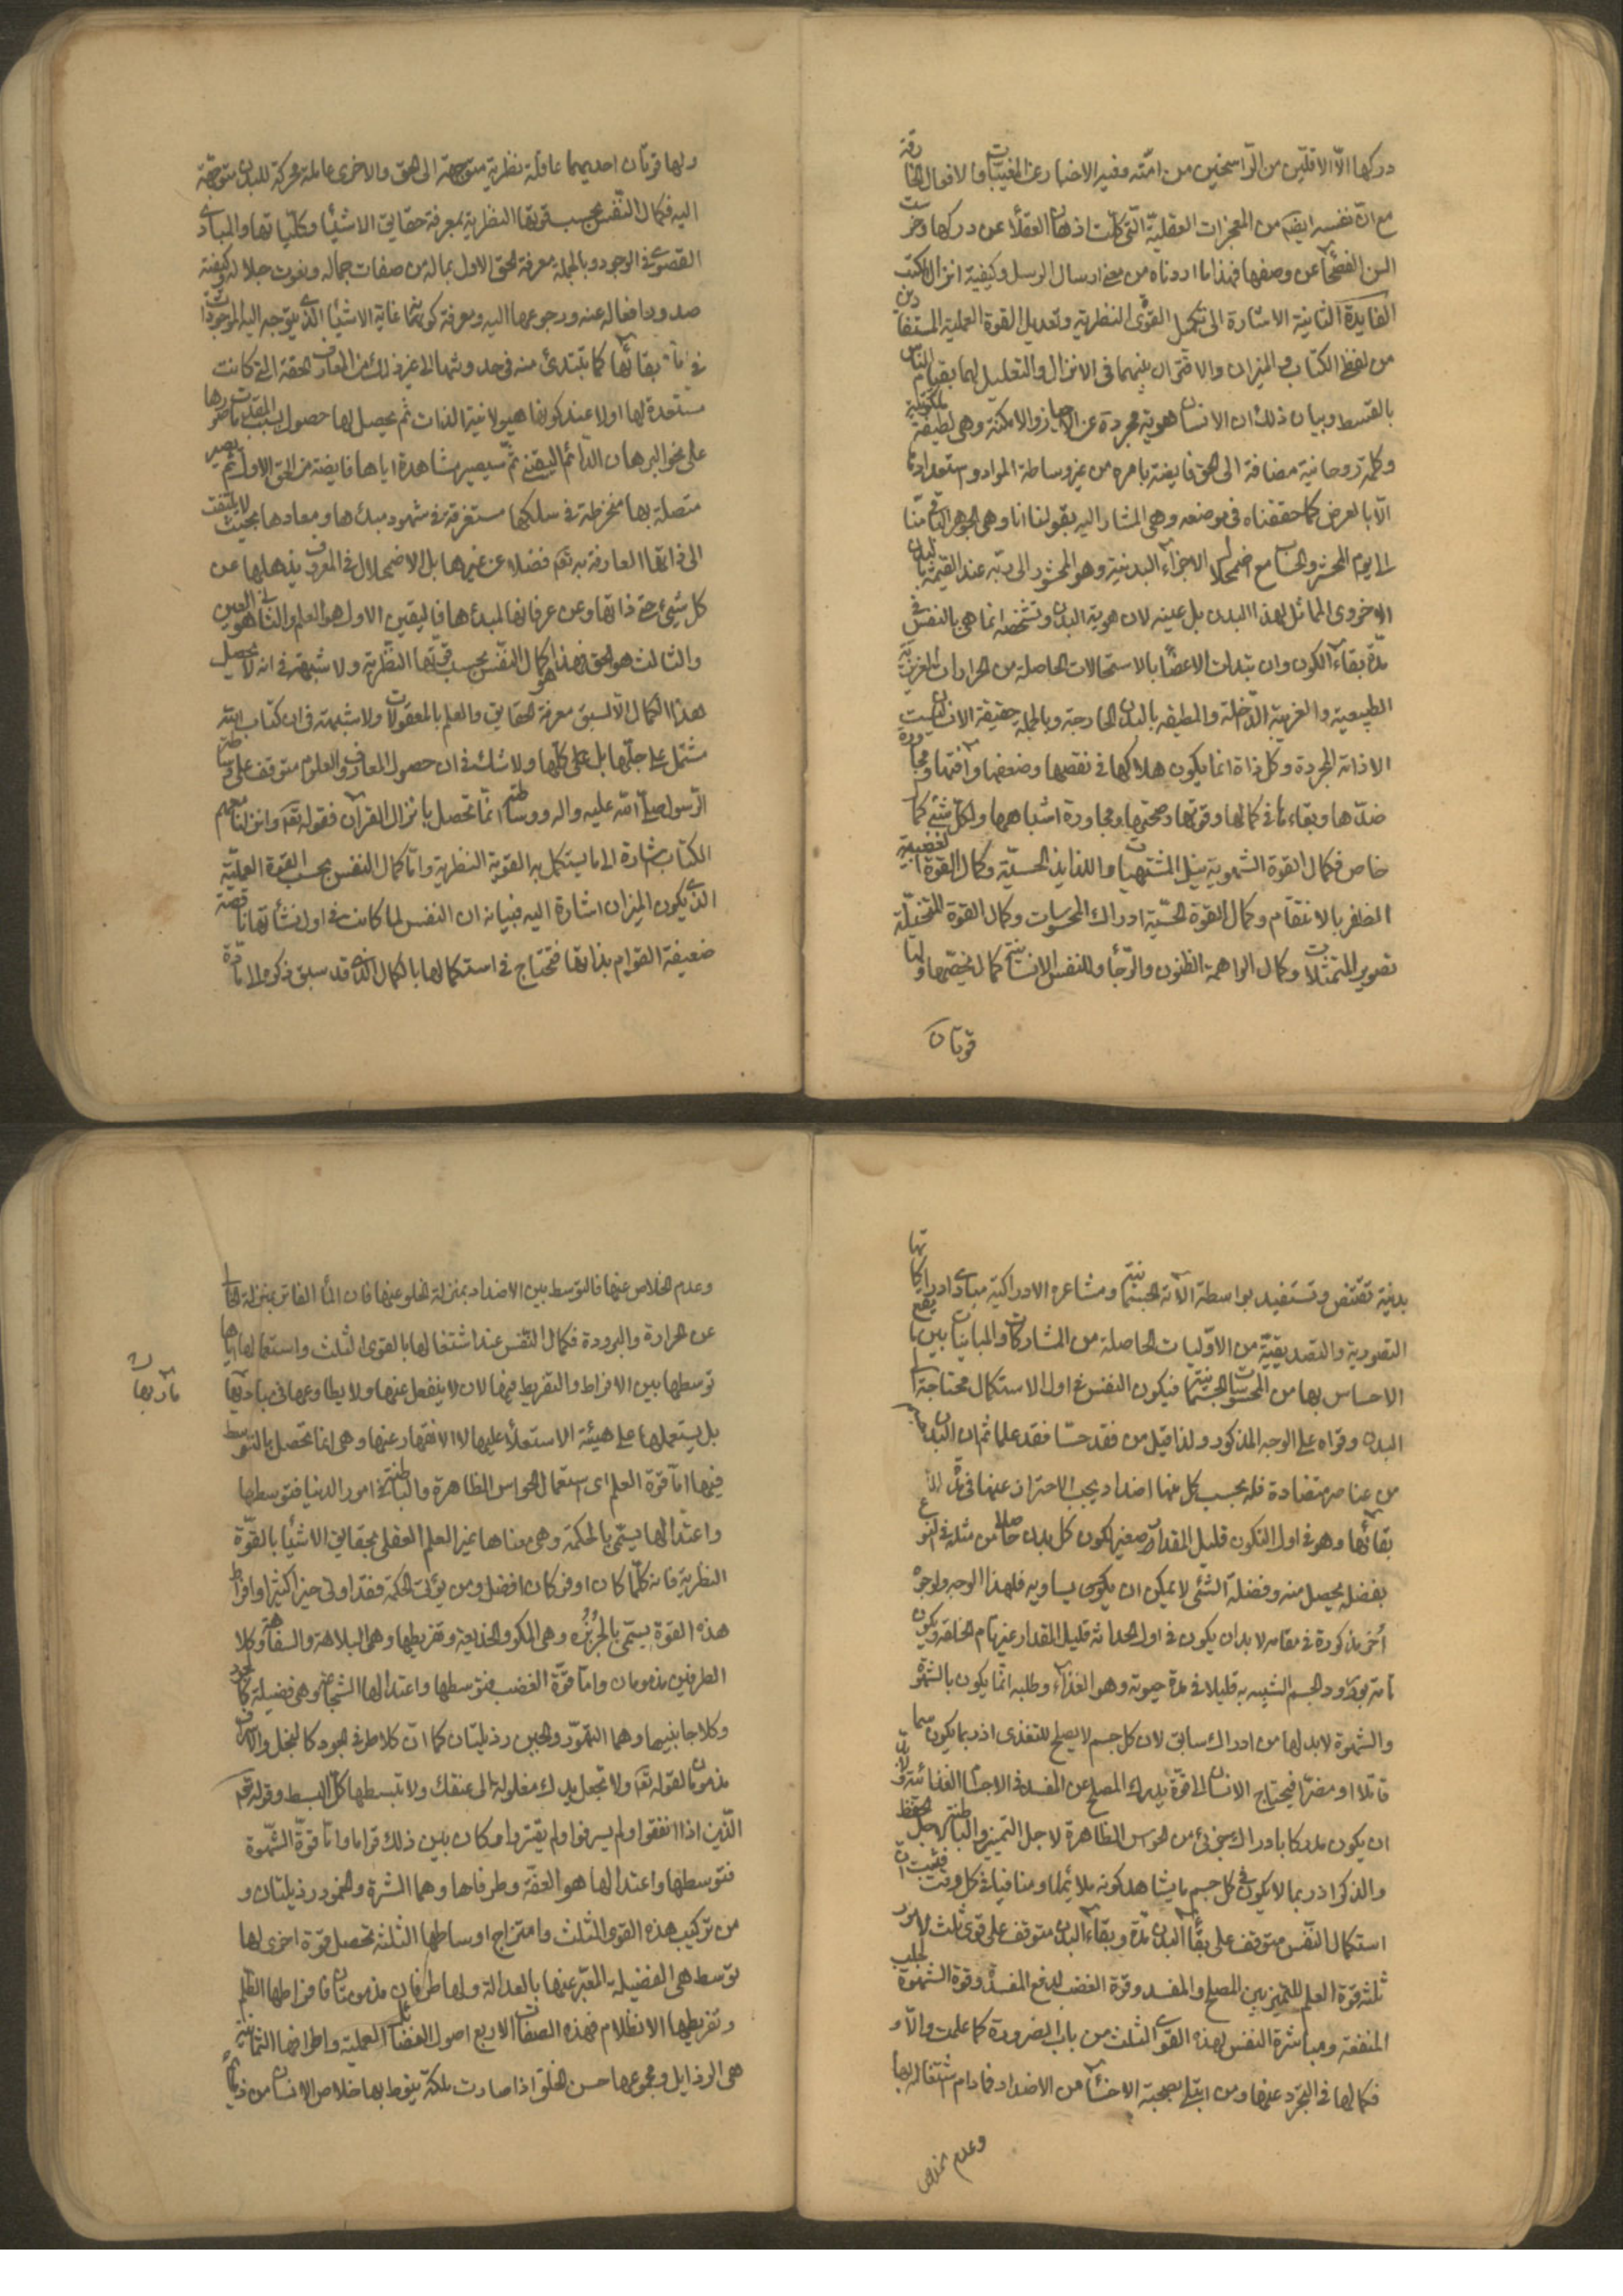 دركها الّا الاقلّين من الرّاسخين من امّته وفيه الاخبار عن المغيبات والافعال الخارقة
مع انّ نفسه ايضا من المعجزات العقليّة الّتى كلّت اذهان العقلاء عن دركها وخرست
السن الفصحاء عن وصفها فهذا ما اردناه من معنى ارسال الرسل وكيفية انزال الكتب
الفايدة الثانية الاشارة الى تكميل القوّى النظرية وتعديل القوة العملية المستفادين
من لفظى الكتاب والميزان والاقتران بينهما فى الانزال والتعليل لهما بقيام الناس
بالقسط وبيان ذلك ان الانسان هوية مجردة عن الاحياز والامكنة وهى لطيفة ملكوتية
وكلمة روحانية مضافة الى الحق فايضة بامره من غير وساطة المواد واستعداداتها
الّا بالعرض كما حققناه فى موضعه وهى المشار اليه بقولنا انا وهى الجوهر الباقى منّا
الى يوم الحشر والحساب مع اضمحلال الاجزاء البدنية وهو المحشور الى ربّه عند القيمة بالبدن
الاخروى المماثل لهذا البدن بل عينه لان هوية البدن وتشخصه انما هى بالنفس فى
مدّة بقاء الكون وان تبدلت الاعضاء بالاستحالات الحاصلة من الحرارات الغريزيّة
الطبيعية والغريبة الدّاخلة والمطيفه بالبدن الخارجة وبالجملة حقيقة الانسان ليست
الا ذاته المجردة وكل ذاة انما يكون هلاكها فى نقصها وضعفها وافتها ومجاورة
ضدّها وبقاءها فى كمالها وقوتها وصحتها ومجاورة اشباهها ولكل شئ كمال
خاص فكمال القوة الشهوية بنيل المشتهيات واللذايذ الحسيّة وكمال القوة الغضبية
الظفر بالانتقام وكمال القوة الحسّية ادراك المحسوسات وكمال القوة المتخيلة
تصوير المتمثلات وكمال الواهمة الظنون والرّجاء وللنفس الانسانية كمال يخصّها ولها
قوتان
ولها قوتان احديهما عاقلة نظرية متوجهة الى الحق والاخرى عاملة محركة للبدن متوجّهة
اليه فكمال النّفس بحسب قوتها النظرية بمعرفة حقايق الاشياء وكلّياتها والمبادى
القصوى فى الوجود وبالجملة معرفة الحق الاول بماله من صفات جماله ونعوت جلاله وكيفية
صدور افعاله عنه ورجوعها اليه ومعرفة كونه غاية الاشياء الذى يتوجه اليه الموجودات
فى بقائها كما تبتدئ منه فى حدوثها الى غير ذلك من المعارف الحقة التى كانت
مستعدة لها اولا عند كونها هيولانية الذات ثم يحصل لها حصول بسبب المقدمات صورها
على نحو البرهان الدّائم اليقينى ثمّ سيصير مشاهدة اياها فايضة من الحق الاول ثم يصير
متصلة بها منخرطة فى سلكها مستغرقة فى شهود مبدئها ومعادها بحيث لا يلتفت
الى ذاتها العارفة به تعالى فضلا عن غيرها بل الاضمحلال فى المعروف يذهلها عن
كل شئ حتى ذاتها وعن عرفانها لمبدئها فاليقين الاول هو العلم والثانى هو العين
والثالث هو الحق فهذا هو كمال النفس بحسب قوّتها النّظريّة ولا شبهة فى انه لا يحصل
هذا الكمال الّا لسبق معرفة الحقايق والعلم بالمعقولات ولا شبهة فى ان كتاب اللّه
مشتمل على جلّها بل على كلّها ولا شك فى ان حصول المعارف والعلوم متوقف على وساطة
الرّسول صلّى اللّه عليه واله ووساطته انّما تحصل بانزال القرآن فقوله تعالى وانزلنا معهم
الكتاب اشارة الى ما يستكمل به القوية النظرية وامّا كمال النفس بحسب القوة العمليّة
الذى يكون الميزان اشارة اليه فبيانه ان النفس لما كانت فى اول نشأتها ناقصة
ضعيفة القوام بذاتها فتحتاج فى استكمالها بالكمال الذى قد سبق ذكره الى مادّة
بدنية تقتنص وتستفيد بواسطة الآته الجسمانية ومشاعره الادراكية مبادى ادراكاتها
التصورية والتصديقيّة من الاوّليات الحاصلة من المشاركات والمباينات بين ما يقع
الاحساس بها من المحسوسات الجسمانية فيكون النفس فى اول الاستكمال محتاجة الى
البدن وقواه على الوجه المذكور ولذا قيل من فقد حسّا فقد علما ثم ان البدن
من عناصر متضادة فله بحسب كل منها اضداد يجب الاحتراز عنها فى مدّة
بقائها وهو فى اول التكون قليل المقدار صغير لكون كل بدن حاصلا من مثله فى النوع
بفضلة يحصل منه وفضلة الشئ لا يمكن ان يكون يساويه فلهذا الوجه ولوجوه
أخر مذكورة فى مقامه لا بد ان يكون فى اول الحداثة قليل المقدار غير تام الخلقة ويكون
تامّه بورود الجسم الشبيه به قليلا فى مدة حيوته وهو الغذاء وطلبه انّما يكون بالشهوة
والشهوة لا بد لها من ادراك سابق لان كل جسم لا يصلح للتغذى اذ ربما يكون سما
قاتلا او مضرّا فيحتاج الانسان الى قوّة يدرك المصلح عن المفسد فى الاجسام الغذائية ولان
ان يكون مدركا بادراك جزئى من الحواس الظاهرة لاجل التمييز والباطنة لاجل الحفظ
والذكر اذ ربما لا يكون فى كل جسم ما يشاهد كونه ملائما ومنافيا فى كل وقت فثبت ان
استكمال النّفس متوقف على بقاء البدن مدّة وبقاء البدن متوقف على قوى ثلث لامور
ثلثة قوة العلم للتمييز بين المصلح والمفسد وقوة الغضب لدفع المفسد وقوة الشهوة لجلب
المنفعة ومباشرة النفس لهذه القوى الثلث من باب الضرورة كما علمت والّا و
فكمالها فى التجرّد عنها ومن ابتلى بصحبة الاخساء من الاضداد فمادام اشتغاله بها
وعدم الخلاص
وعدم الخلاص عنها فالتوسط بين الاضداد بمنزلة الخلو عنها فان الماء الفاتر بمنزلة الخالى
عن الحرارة والبرودة فكمال النّفس عند اشتغالها بالقوى الثلث واستعمالها اياها
توسطها بين الافراط والتفريط فيها لان لا ينفعل عنها ولا يطاوعها فى مآربها
مآربها ن
بل يستعملها على هيئة الاستعلاء عليها لا الانقهار عنها وهى انما تحصل بالتوسط
فيها امّا قوة العلم اى استعمال الحواس الظاهرة والباطنة فى امور الدنيا فتوسطها
واعتدالها يسمّى بالحكمة وهى معناها غير العلم العقلى بحقايق الاشياء بالقوّة
النظرية فانه كلّما كان اوفر كان افضل ومن يؤت الحكمة فقد اوتى خيرا كثيرا وافراط
هذه القوة يسمّى بالجُربُزه وهى المكر والخديعة وتفريطها وهى البلاهة والسفاهة وكلا
الطرفين مذمومان وامّا قوّة الغضب فتوسطها واعتدالها الشجاعة وهى فضيلة كالجود
وكلا جانبيها وهما التهوّر والجبن رذيلتان كما انّ كلا طرفى الجود كالبخل والاسراف
مذمومان لقوله تعالى ولا تجعل يدك مغلولة الى عنقك ولا تبسطها كلّ البسط وقوله تعالى
الّذين اذا انفقوا ولم يسرفوا ولم يقتروا وكان بين ذلك قواما وامّا قوّة الشّهوة
فتوسطها واعتدالها هو العفّة وطرفاها وهما الشره والخمود رذيلتان و
من تركيب هذه القوى الثلث وامتزاج اوساطها الثلثه تحصل قوة اخرى لها
توسط هى الفضيلة المعبّر عنها بالعدالة ولها طرفان مذمومتان فافراطها الظّلم
وتفريطها الانظلام فهذه الصفات الاربع اصول الفضائل العملية واطرافها الثمانية
هى الرذايل ومجموعها حسن الخلق اذا صارت ملكة ينوط بها خلاص الانسان من